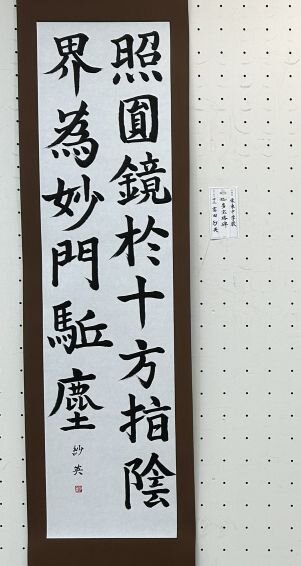 照圓鏡於十方指陰
界為妙門駈塵
紗英